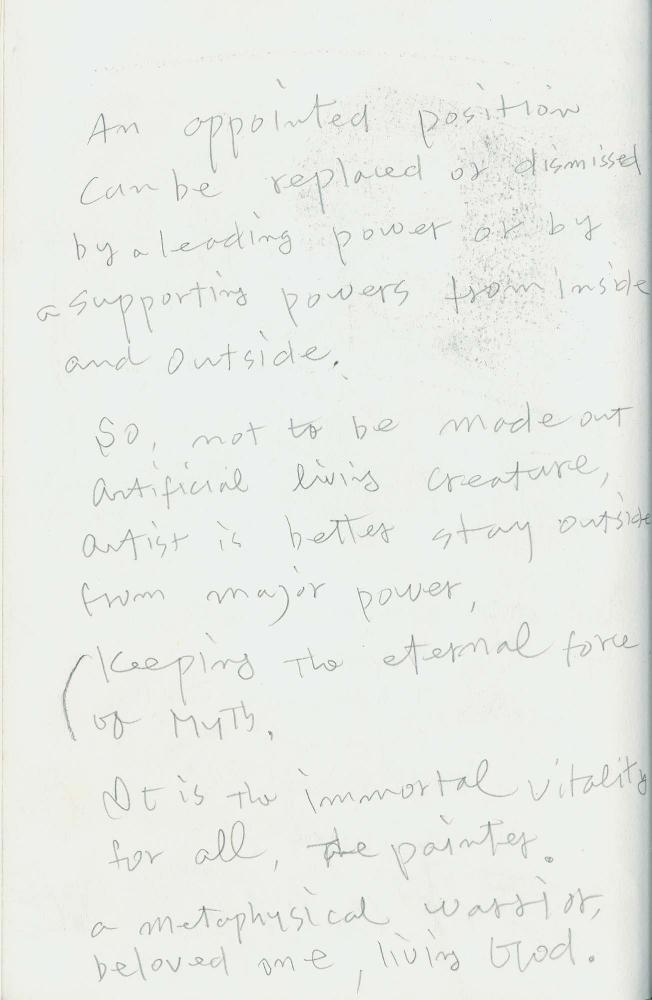 An appointed position
can be replaced or dismissed
by a leading power or by
a supporting powers from inside
and outside.
So, not to be made out
artificial living creature,
artist is better stay outside
from major power,
(Keeping the eternal force
of Myth.
It is the immortal vitality
for all, the painter.
a metaphysical warrior,
beloved one, living God.